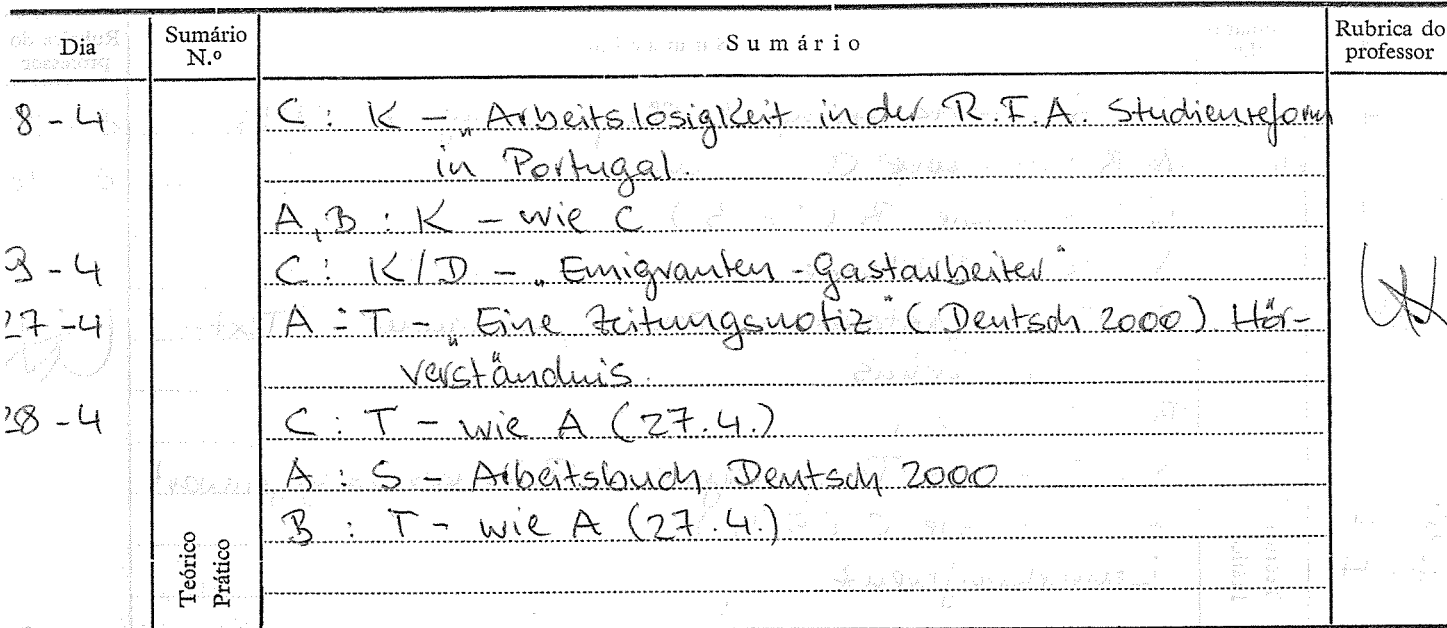 Dia Sumário N.º Sumário Rubrica do professor
8-4 C: K - „Arbeitslosigkeit in der R.F.A. Studienreform
in Portugal.
A, B : K - wie C
9-4 C: K/D - „Emigranten - Gastarbeiter"
27-4 A : T - „Eine Zeitungsnotiz" (Deutsch 2000) Hör-
verständnis.
28-4 C : T - wie A (27.4.)
A : S - Arbeitsbuch Deutsch 2000
B : T - wie A (27.4.)
Teórico
Prático